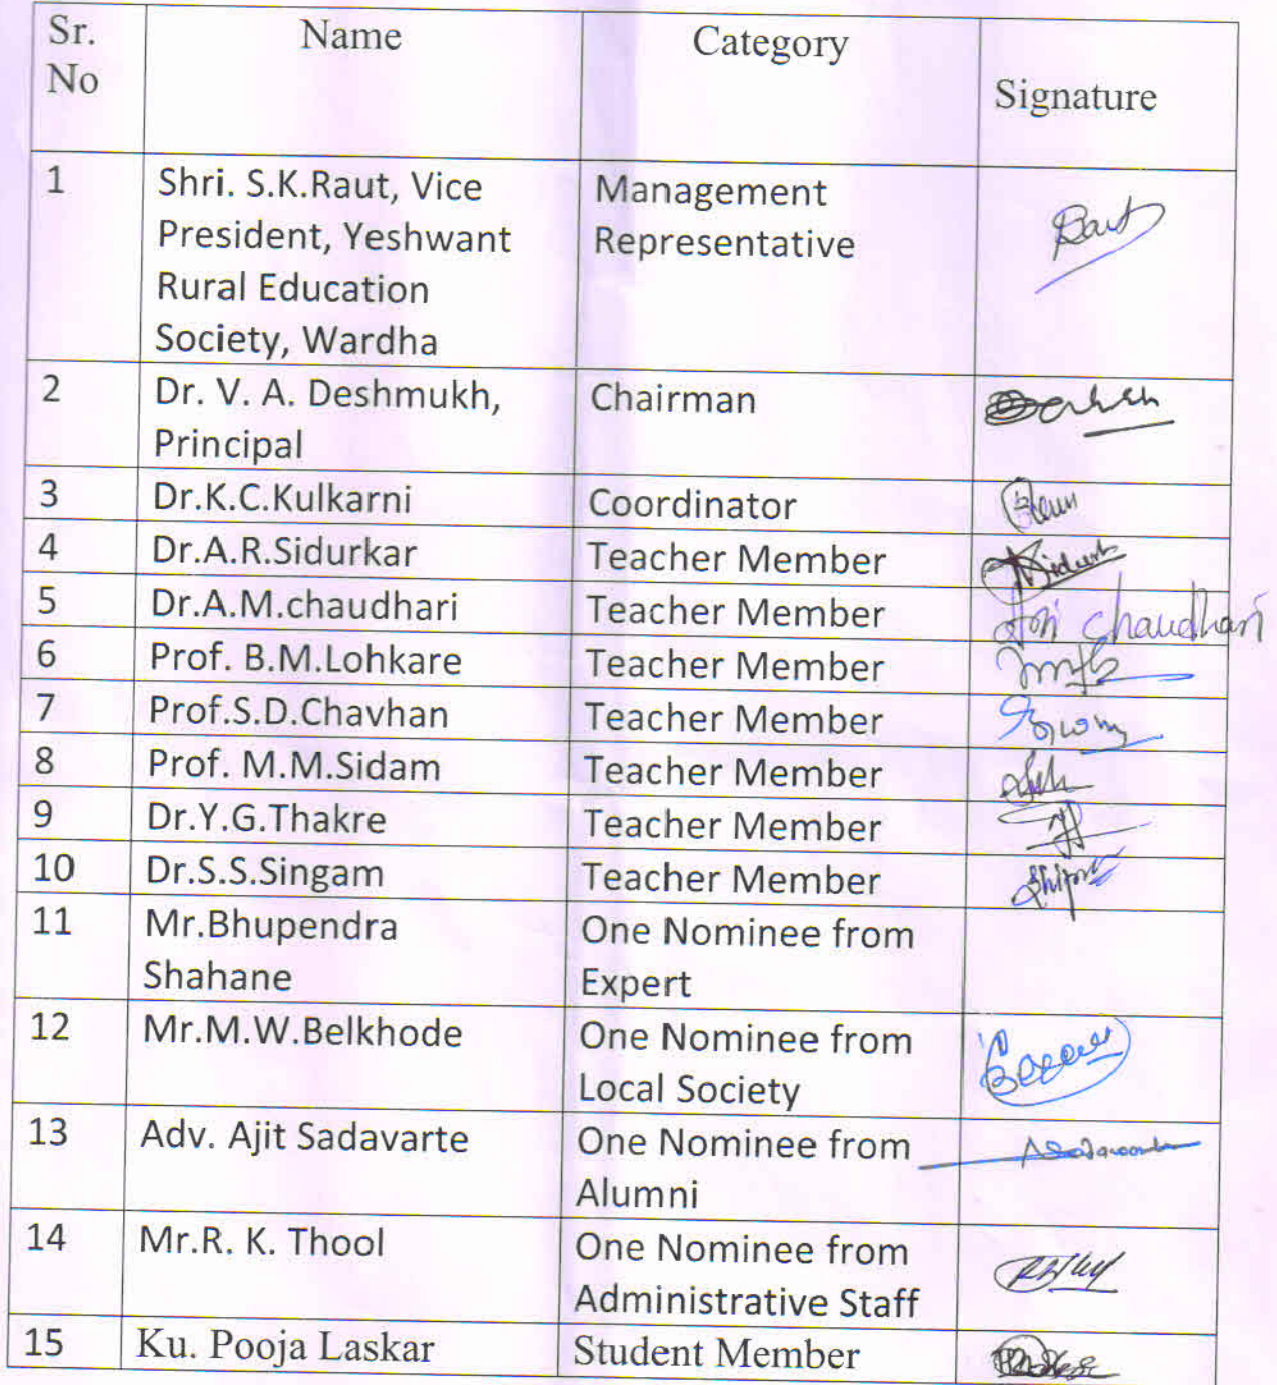 Sr. No Name Category Signature
1 Shri. S.K.Raut, Vice Management
President, Yeshwant Representative
Rural Education
Society, Wardha
2 Dr. V. A. Deshmukh, Chairman
Principal
3 Dr.K.C.Kulkarni Coordinator
4 Dr.A.R.Sidurkar Teacher Member
5 Dr.A.M.chaudhari Teacher Member Chaudhari
6 Prof. B.M.Lohkare Teacher Member
7 Prof.S.D.Chavhan Teacher Member
8 Prof. M.M.Sidam Teacher Member
9 Dr.Y.G.Thakre Teacher Member
10 Dr.S.S.Singam Teacher Member
11 Mr.Bhupendra One Nominee from
Shahane Expert
12 Mr.M.W.Belkhode One Nominee from
Local Society
13 Adv. Ajit Sadavarte One Nominee from
Alumni
14 Mr.R. K. Thool One Nominee from
Administrative Staff
15 Ku. Pooja Laskar Student Member